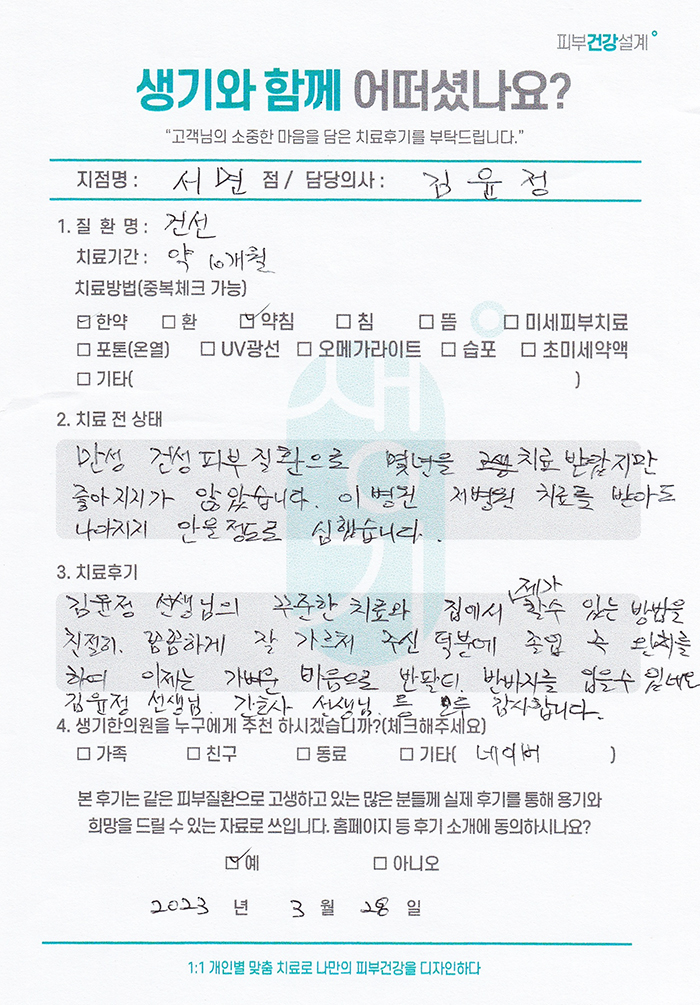 피부건강설계
생기와 함께 어떠셨나요?
"고객님의 소중한 마음을 담은 치료후기를 부탁드립니다."
지점명 : 서면 점 / 담당의사 : 김윤정
1. 질 환 명 : 건선
치료기간 : 약 10개월
치료방법(중복체크 가능)
☑ 한약 □ 환 ☑ 약침 □ 침 □ 뜸 □ 미세피부치료
□ 포톤(온열) □ UV광선 □ 오메가라이트 □ 습포 □ 초미세약액
□ 기타( )
생기
2. 치료 전 상태
만성 건성피부질환으로 몇년을 치료 받았지만
좋아지지가 않았습니다. 이병원 저병원 치료를 받아도
나아지지 안을정도로 심했습니다.
3. 치료후기
김윤정 선생님의 꾸준한 치료와 집에서 제가 할수 있는 방법을
친절히. 꼼꼼하게 잘 가르쳐 주신 덕분에 졸업 축
하여 이제는 가벼운 마음으로 반팔티. 반바지를 입을수 있네요
김윤정 선생님. 간호사 선생님.들 모두 감사합니다.
4. 생기한의원을 누구에게 추천 하시겠습니까?(체크해주세요)
□ 가족 □ 친구 □ 동료 □ 기타( 네이버 )
본 후기는 같은 피부질환으로 고생하고 있는 많은 분들께 실제 후기를 통해 용기와
희망을 드릴 수 있는 자료로 쓰입니다. 홈페이지 등 후기 소개에 동의하시나요?
☑ 예 □ 아니오
2023 년 3 월 28 일
1:1 개인별 맞춤 치료로 나만의 피부건강을 디자인하다